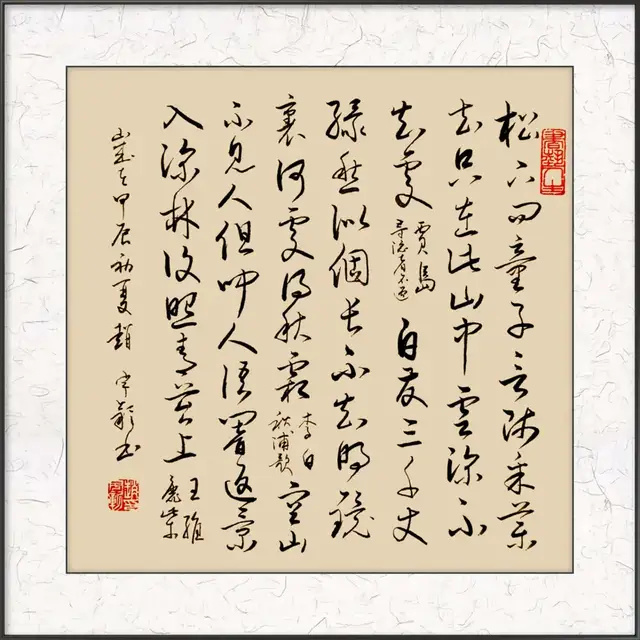 松下問童子言师采药
去只在此山中雲深不
知處
賈島
尋隐者不遇
白发三千丈
缘愁似個长不知明镜
裏何處得秋霜
李白
秋浦歌
空山
不見人但聞人语響返景
入深林復照青苔上
王維
鹿柴
歲在甲辰初夏趙书